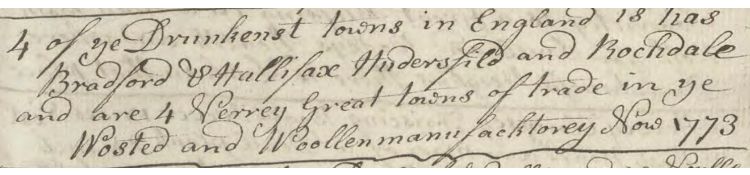 4 of ye Drunkenst towns in England is has
Bradford & Hallifax Hudersfild and Rochdale
and are 4 Verrey Great towns of trade in ye
Wosted and Woollenmanufacktorey Now 1773